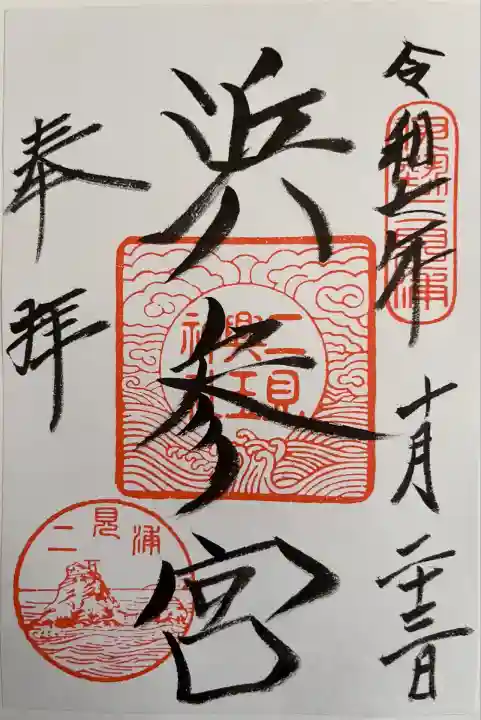 令和年十月二十三日
伊勢二見浦
浜参宮
二見
興玉
神社
奉拝
二見浦